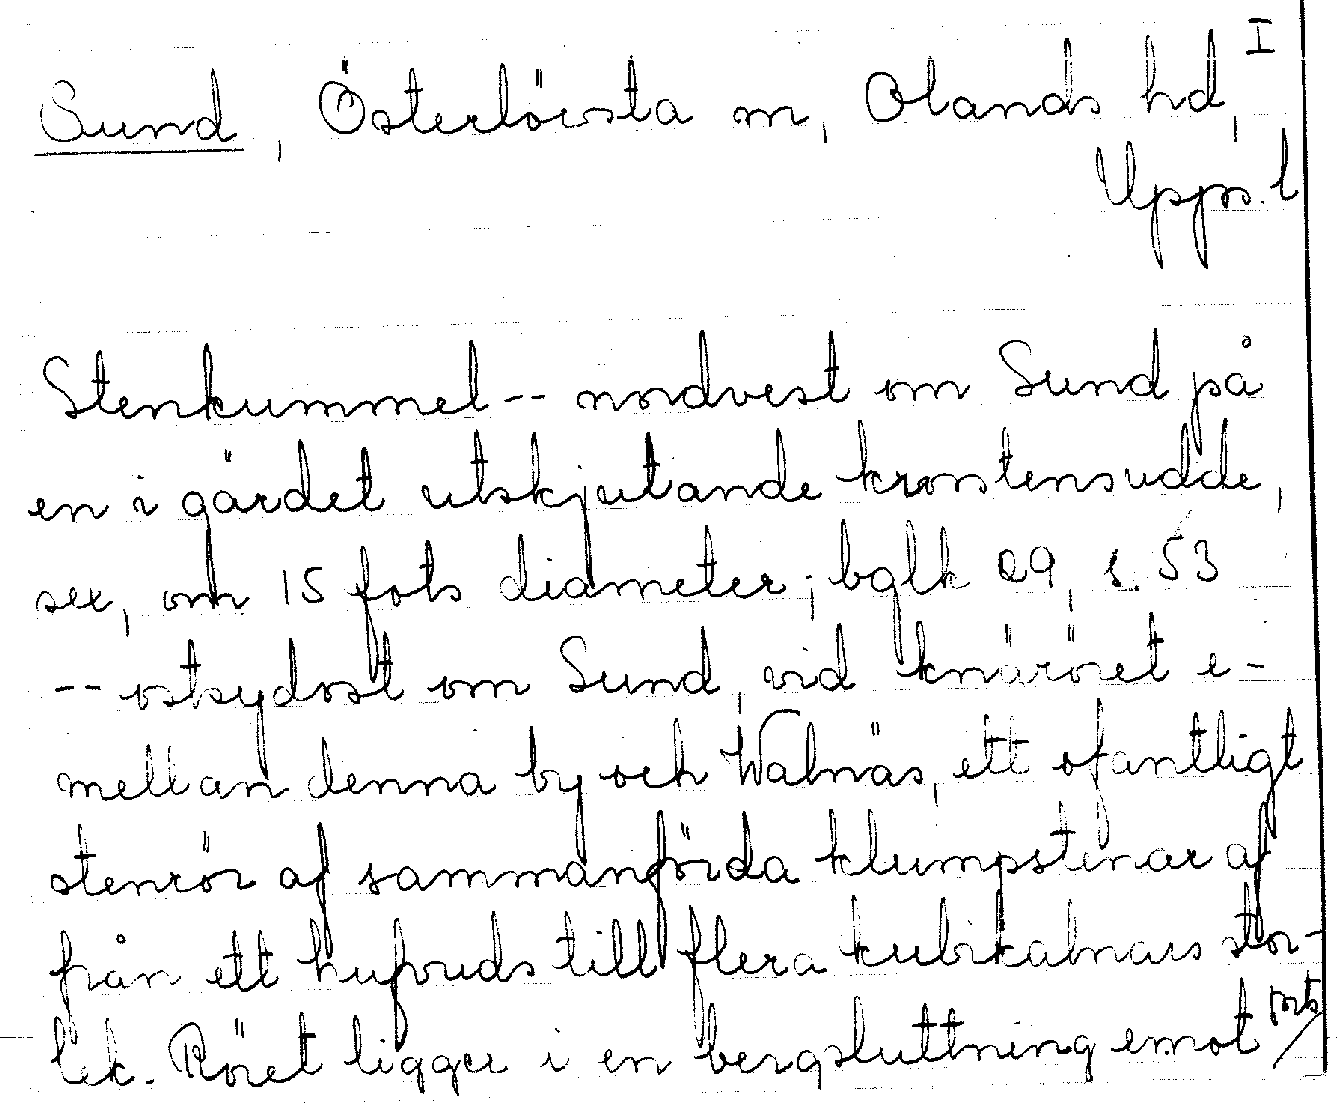 I
Sund, Österlövsta sn, Olands hd,
Upps. l
Stenkummel -- nordvest om Sund på
en i gärdet utskjutande krosstensudde,
sex, om 15 fots diameter; bglk 29, s. 53
-- ostsydost om Sund, vid knäröret e-
mellan denna by och Walnäs, ett ofantligt
stenrör af sammanförda klumpstenar af
från ett hufvuds till flera kubikalnars stor-
lek. Röret ligger i en bergsluttning emot
forts